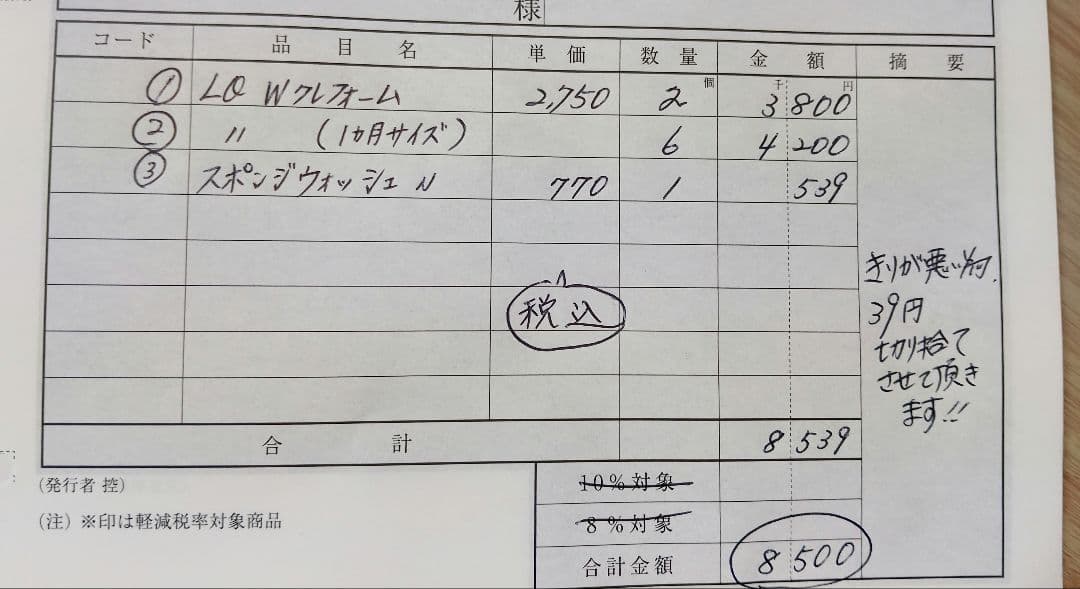 様
コード 品目名 単価 数量 金額 摘要
① LQ Wクレフォーム 2,750 2個 3千800円
② 〃 (1ヵ月サイズ) 6 4 200
③ スポンジウォッシュN 770 1 539
税込
きりが悪い為、
39円
切り捨て
させて頂き
ます!!
合計 8 539
(発行者 控)
10%対象
(注) ※印は軽減税率対象商品
8%対象
合計金額 8 500